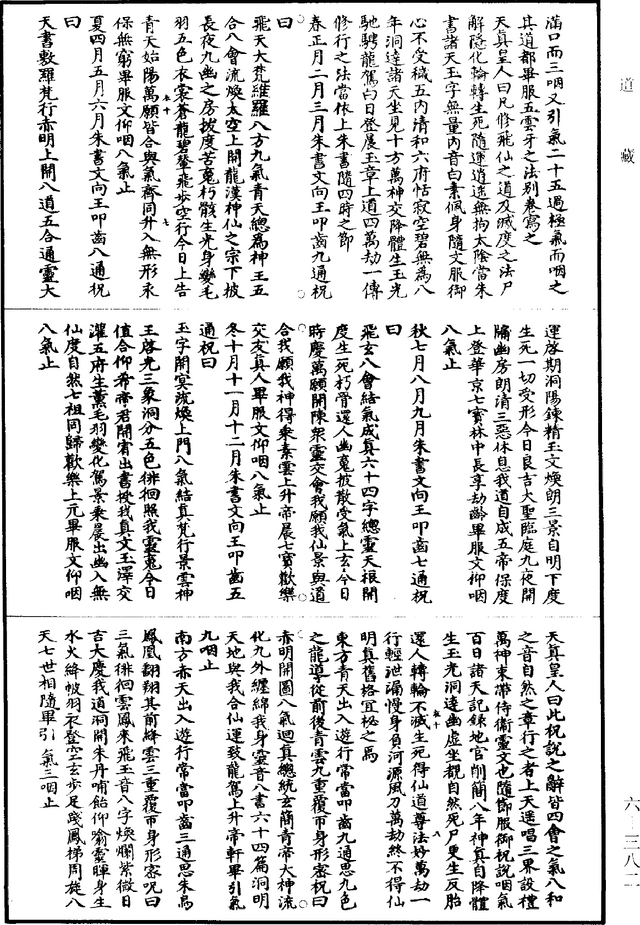 道藏
滿口而三咽又引氣二十五過極氣而咽之
其道都畢服五雲牙之法別卷寫之
天真皇人曰凡修飛仙之道及滅度之法尸
解隱化輪轉生死隨運逍遙無拘太陰當朱
書諸天玉字無量內音白素佩身隨文服御
心不受穢五內清和六府恬寂空碧無為八
年洞達諸天坐見十方萬神交降體生玉光
馳騁龍駕白日登晨玉章上道四萬劫一傳
修行之法當依上朱書隨四時之節
春正月二月三月朱書文向王叩齒九通祝
曰
飛天大梵維羅八方九氣青天總為神王五
合八會流煥太空上開龍漢神仙之宗下披
長夜九幽之房拔度苦魂朽骸生光身變毛
羽五色衣裳蒼龍碧輦飛步空行今日上告
青天始陽萬願皆合與氣齊同升入無形永
保無窮畢服文仰咽八氣止
夏四月五月六月朱書文向王叩齒八通祝
曰
天書敷羅梵行赤明上開八道五合通靈大
運啓期洞陽鍊精玉文煥朗三景自明下度
生死一切受形今日良吉大聖臨庭九夜開
牖幽房朗清三惡休息我道自成五帝保度
上登華京七寶林中長享劫齡畢服文仰咽
八氣止
秋七月八月九月朱書文向王叩齒七通祝
曰
飛玄八會結氣成真六十四字總靈天根開
度生死朽骨還人幽魂披散受氣上玄今日
時慶萬願開陳衆靈交會我願我仙景與道
合我願我神得乘素雲上升帝晨七寶歡樂
交友真人畢服文仰咽八氣止
冬十月十一月十二月朱書文向王叩齒五
通祝曰
玉字開冥流煥上門八氣結真梵行景雲神
王啓光三象洞分五色徘徊照我靈魂今日
值合仰希帝君開宥出書授我真文玉澤交
灌五府生薰毛羽變化駕景乘晨出幽入無
仙度自然七祖同歸歡樂上元畢服文仰咽
八氣止
天真皇人曰此祝說之辭皆四會之氣八和
之音自然之章行之者上天遥唱三界設禮
萬神束帶侍衛靈文也隨節服御祝說咽氣
百日諸天記錄地官削簡八年神真自降體
生玉光洞達幽虛坐觀自然死尸更生反胎
還人轉輪不滅生死得仙道尊法妙萬劫一
行輕泄漏慢身負河源風刀萬劫終不得仙
明真舊格宜秘之焉
東方青天出入遊行常當叩齒九通思九色
之龍導從前後青雲九重覆帀身形密祝曰
赤明開圖八氣迴真總統玄簡青帝大神流
化九外纏綿我身靈音八書六十四篇洞明
天地與我合仙運致龍駕上升帝軒畢引氣
九咽止
南方赤天出入遊行常當叩齒三通思朱鳥
鳳凰翻翔其前絳雲三重覆帀身形密呪曰
三氣徘徊雲鳳來飛玉音八字煥爛紫微日
吉大慶我道洞開朱丹哺飴仰喻靈暉身生
水火絳帔羽衣登空玄步足踐鳳梯周旋八
天七世相隨畢引氣三咽止
六—三八二